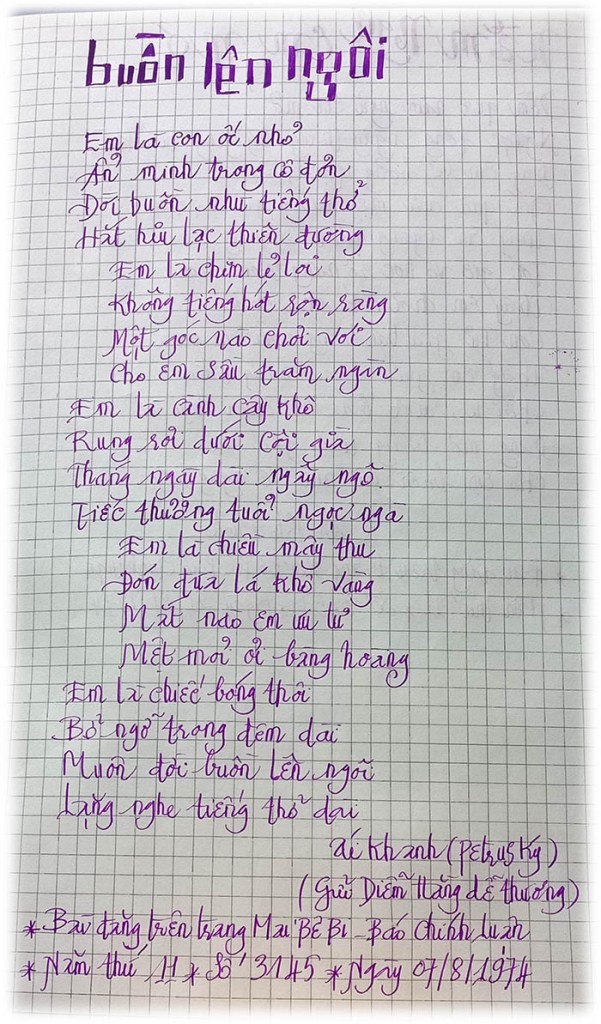 buồn lên ngôi
Em là con ốc nhỏ
Ẩn mình trong cô đơn
Đời buồn như tiếng thở
Hắt hiu lạc thiên đường
Em là chim lẻ loi
Không tiếng hót rộn ràng
Một góc nào chơi vơi
Cho em sầu trăm ngàn
Em là cành cây khô
Rung rơi dưới cội già
Tháng ngày dài ngây ngô
Tiếc thương tuổi ngọc ngà
Em là chiều mây thu
Đón đưa lá khô vàng
Mắt nào em ưu tư
Mệt mỏi ơi bàng hoàng
Em là chiếc bóng thôi
Bỏ ngỏ trong đêm dài
Muôn đời buồn lên ngôi
Lặng nghe tiếng thở dài
ái khanh (Petrus Ký)
(gửi Diễm Hằng dễ thương)
* Bài đăng trên trang Mai Bê Bi - Báo Chính Luận
* Năm thứ 11 * Số 3145 * Ngày 07/8/1974